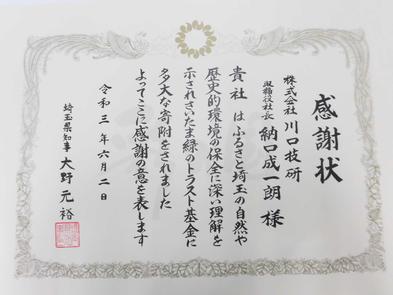 感謝状
株式会社 川口技研
取締役社長 納口成一朗 様
貴社 はふるさと埼玉の自然や
歴史的環境の保全に深い理解を
示されさいたま緑のトラスト基金に
多大な寄附をされました
よってここに感謝の意を表します
令和三年六月二日
埼玉県知事 大野元裕